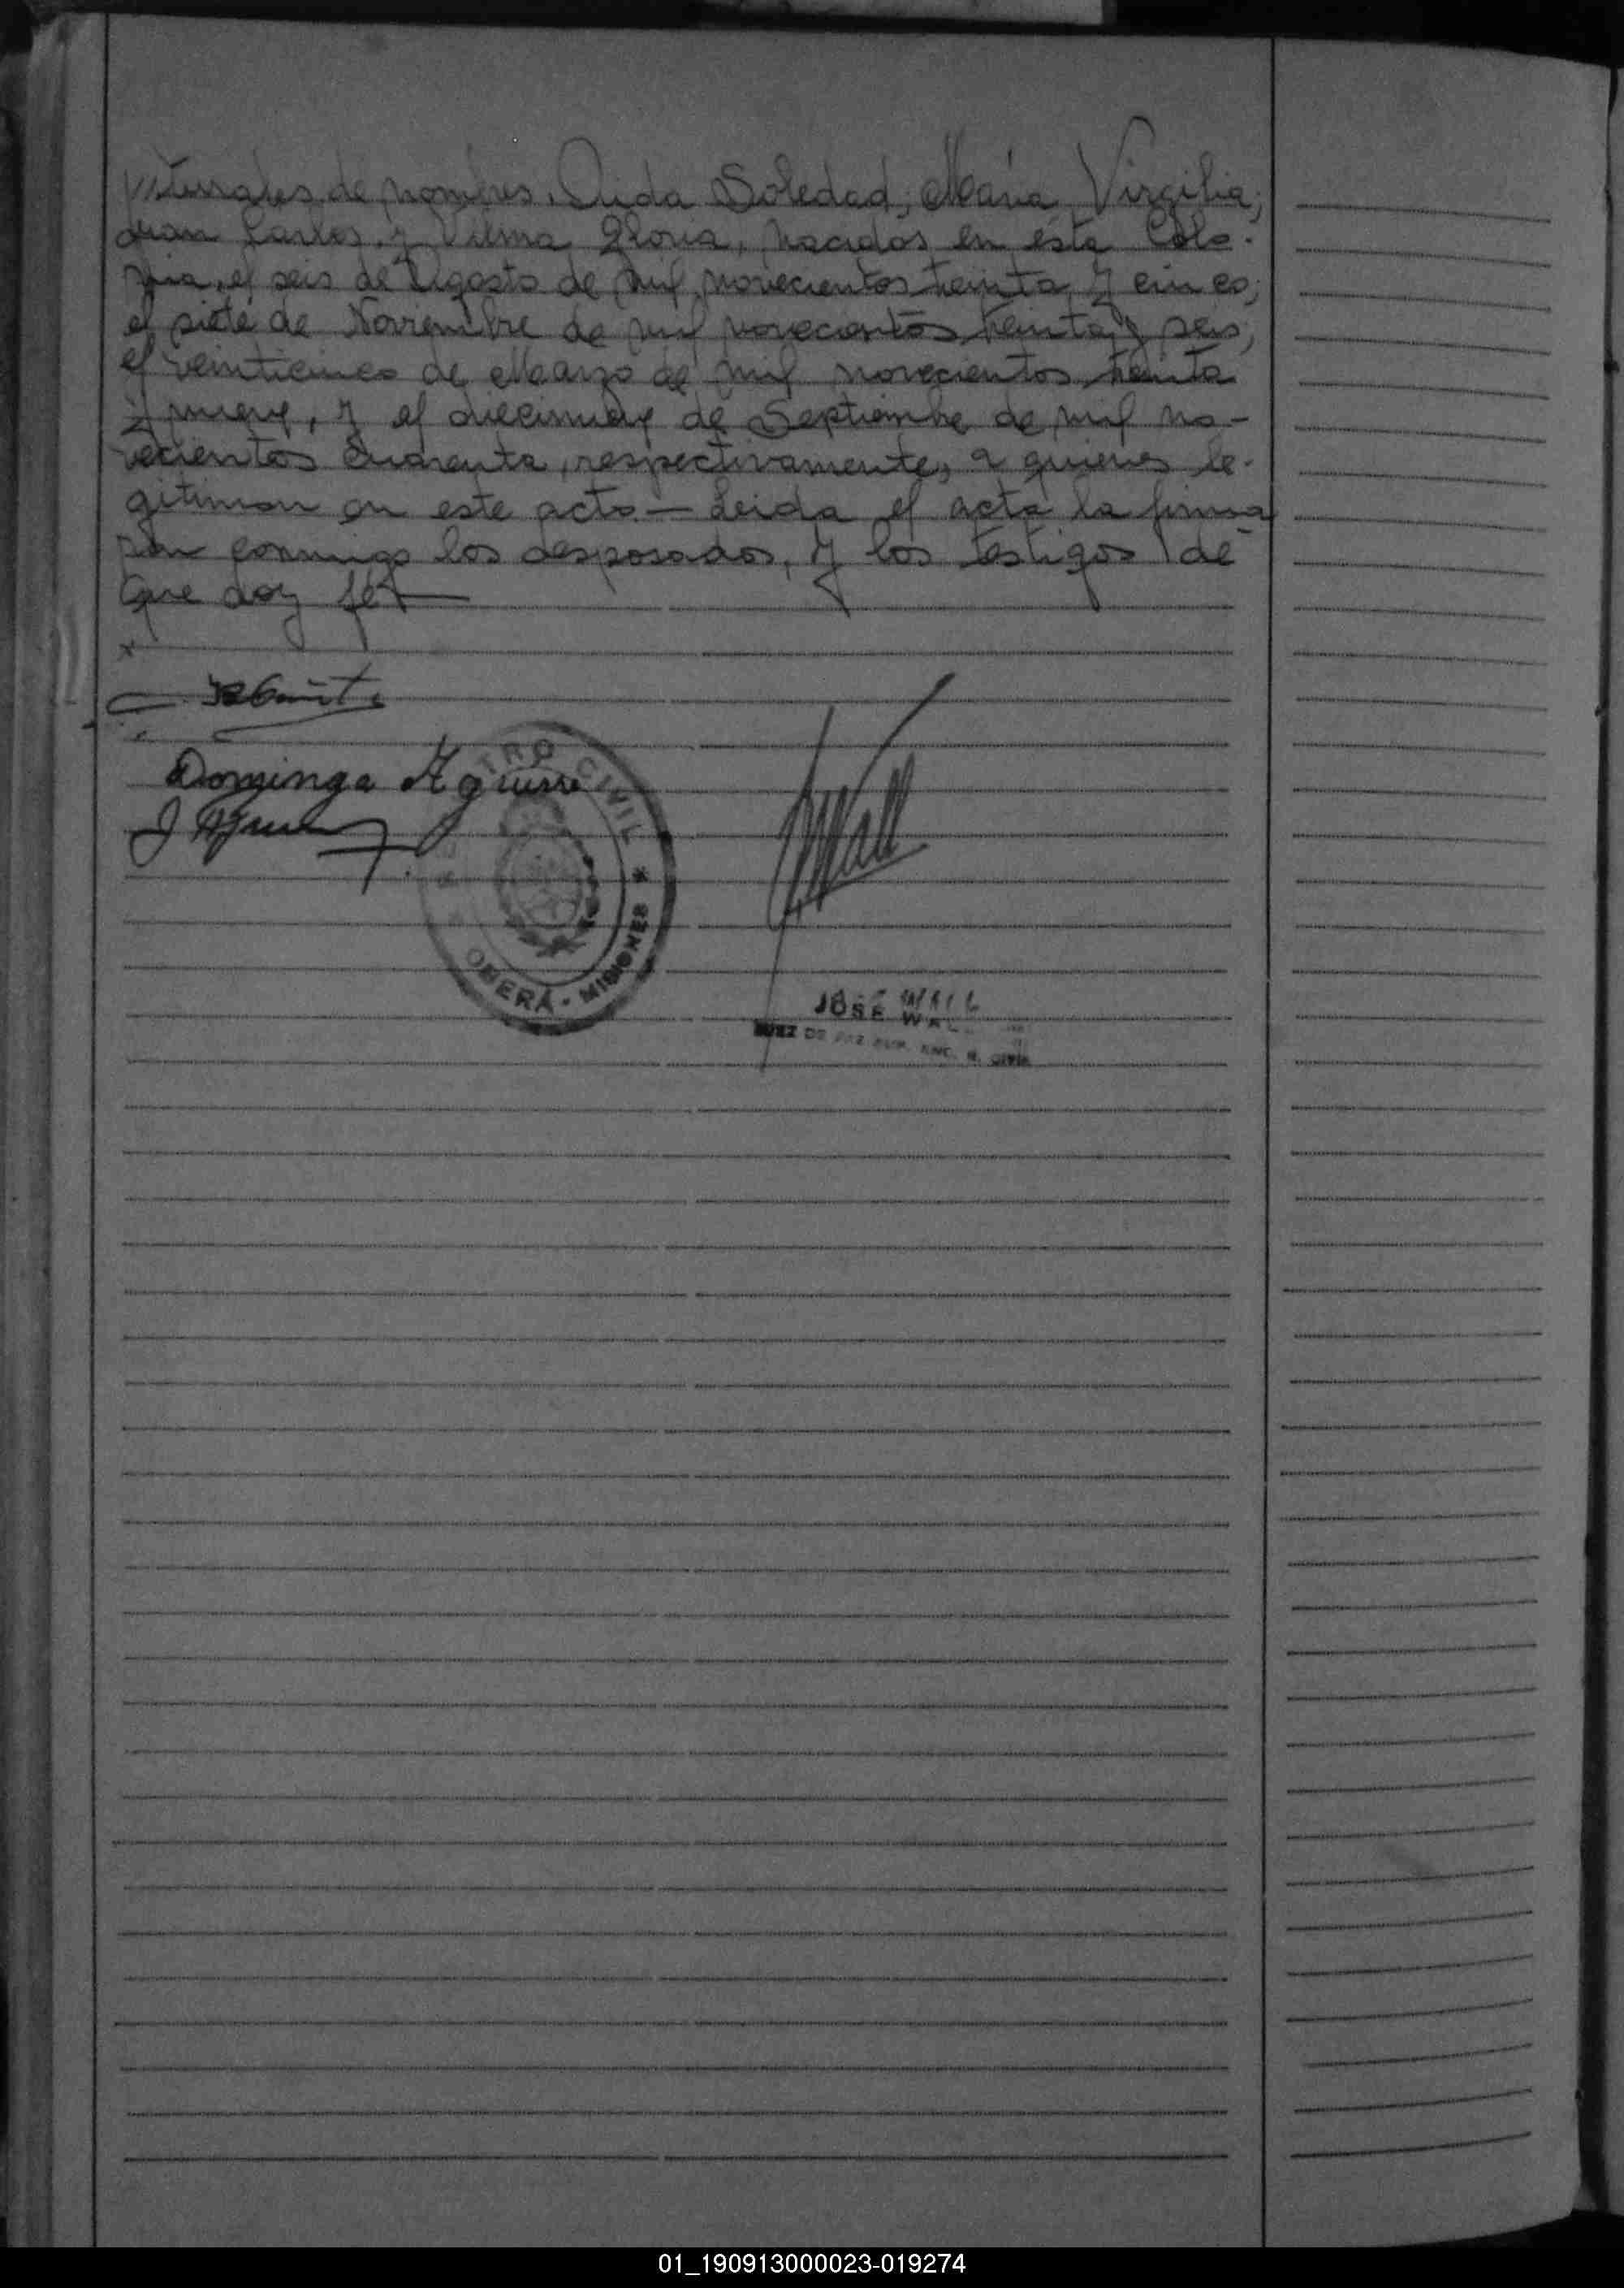 naturales de nombres, Aida Soledad, María Virgilia;
Juan Carlos, y Vilma Gloria, nacidos en ésta Colo-
nia, el seis de Agosto de mil novecientos treinta y cinco;
el siete de Noviembre de mil novecientos treinta y seis;
el veinticinco de Marzo de mil novecientos treinta
y nueve, y el diecinueve de Septiembre de mil no-
vecientos cuarenta, respectivamente, a quienes le-
gitiman en este acto — Leida el acta la firma
ron conmigo los desposados, y los testigos de
que doy fé
x
Dominga Aguirre
CIVIL
OBERÁ - MISIONES
JOSE WALL
JUEZ DE PAZ SUP. ENC. R. CIVIL
01_190913000023-019274